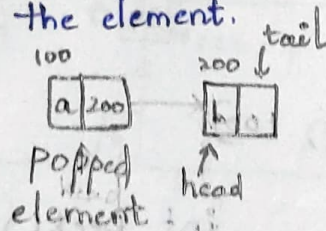 the element.
tail
100
200
a 200
b
popped
head
element.